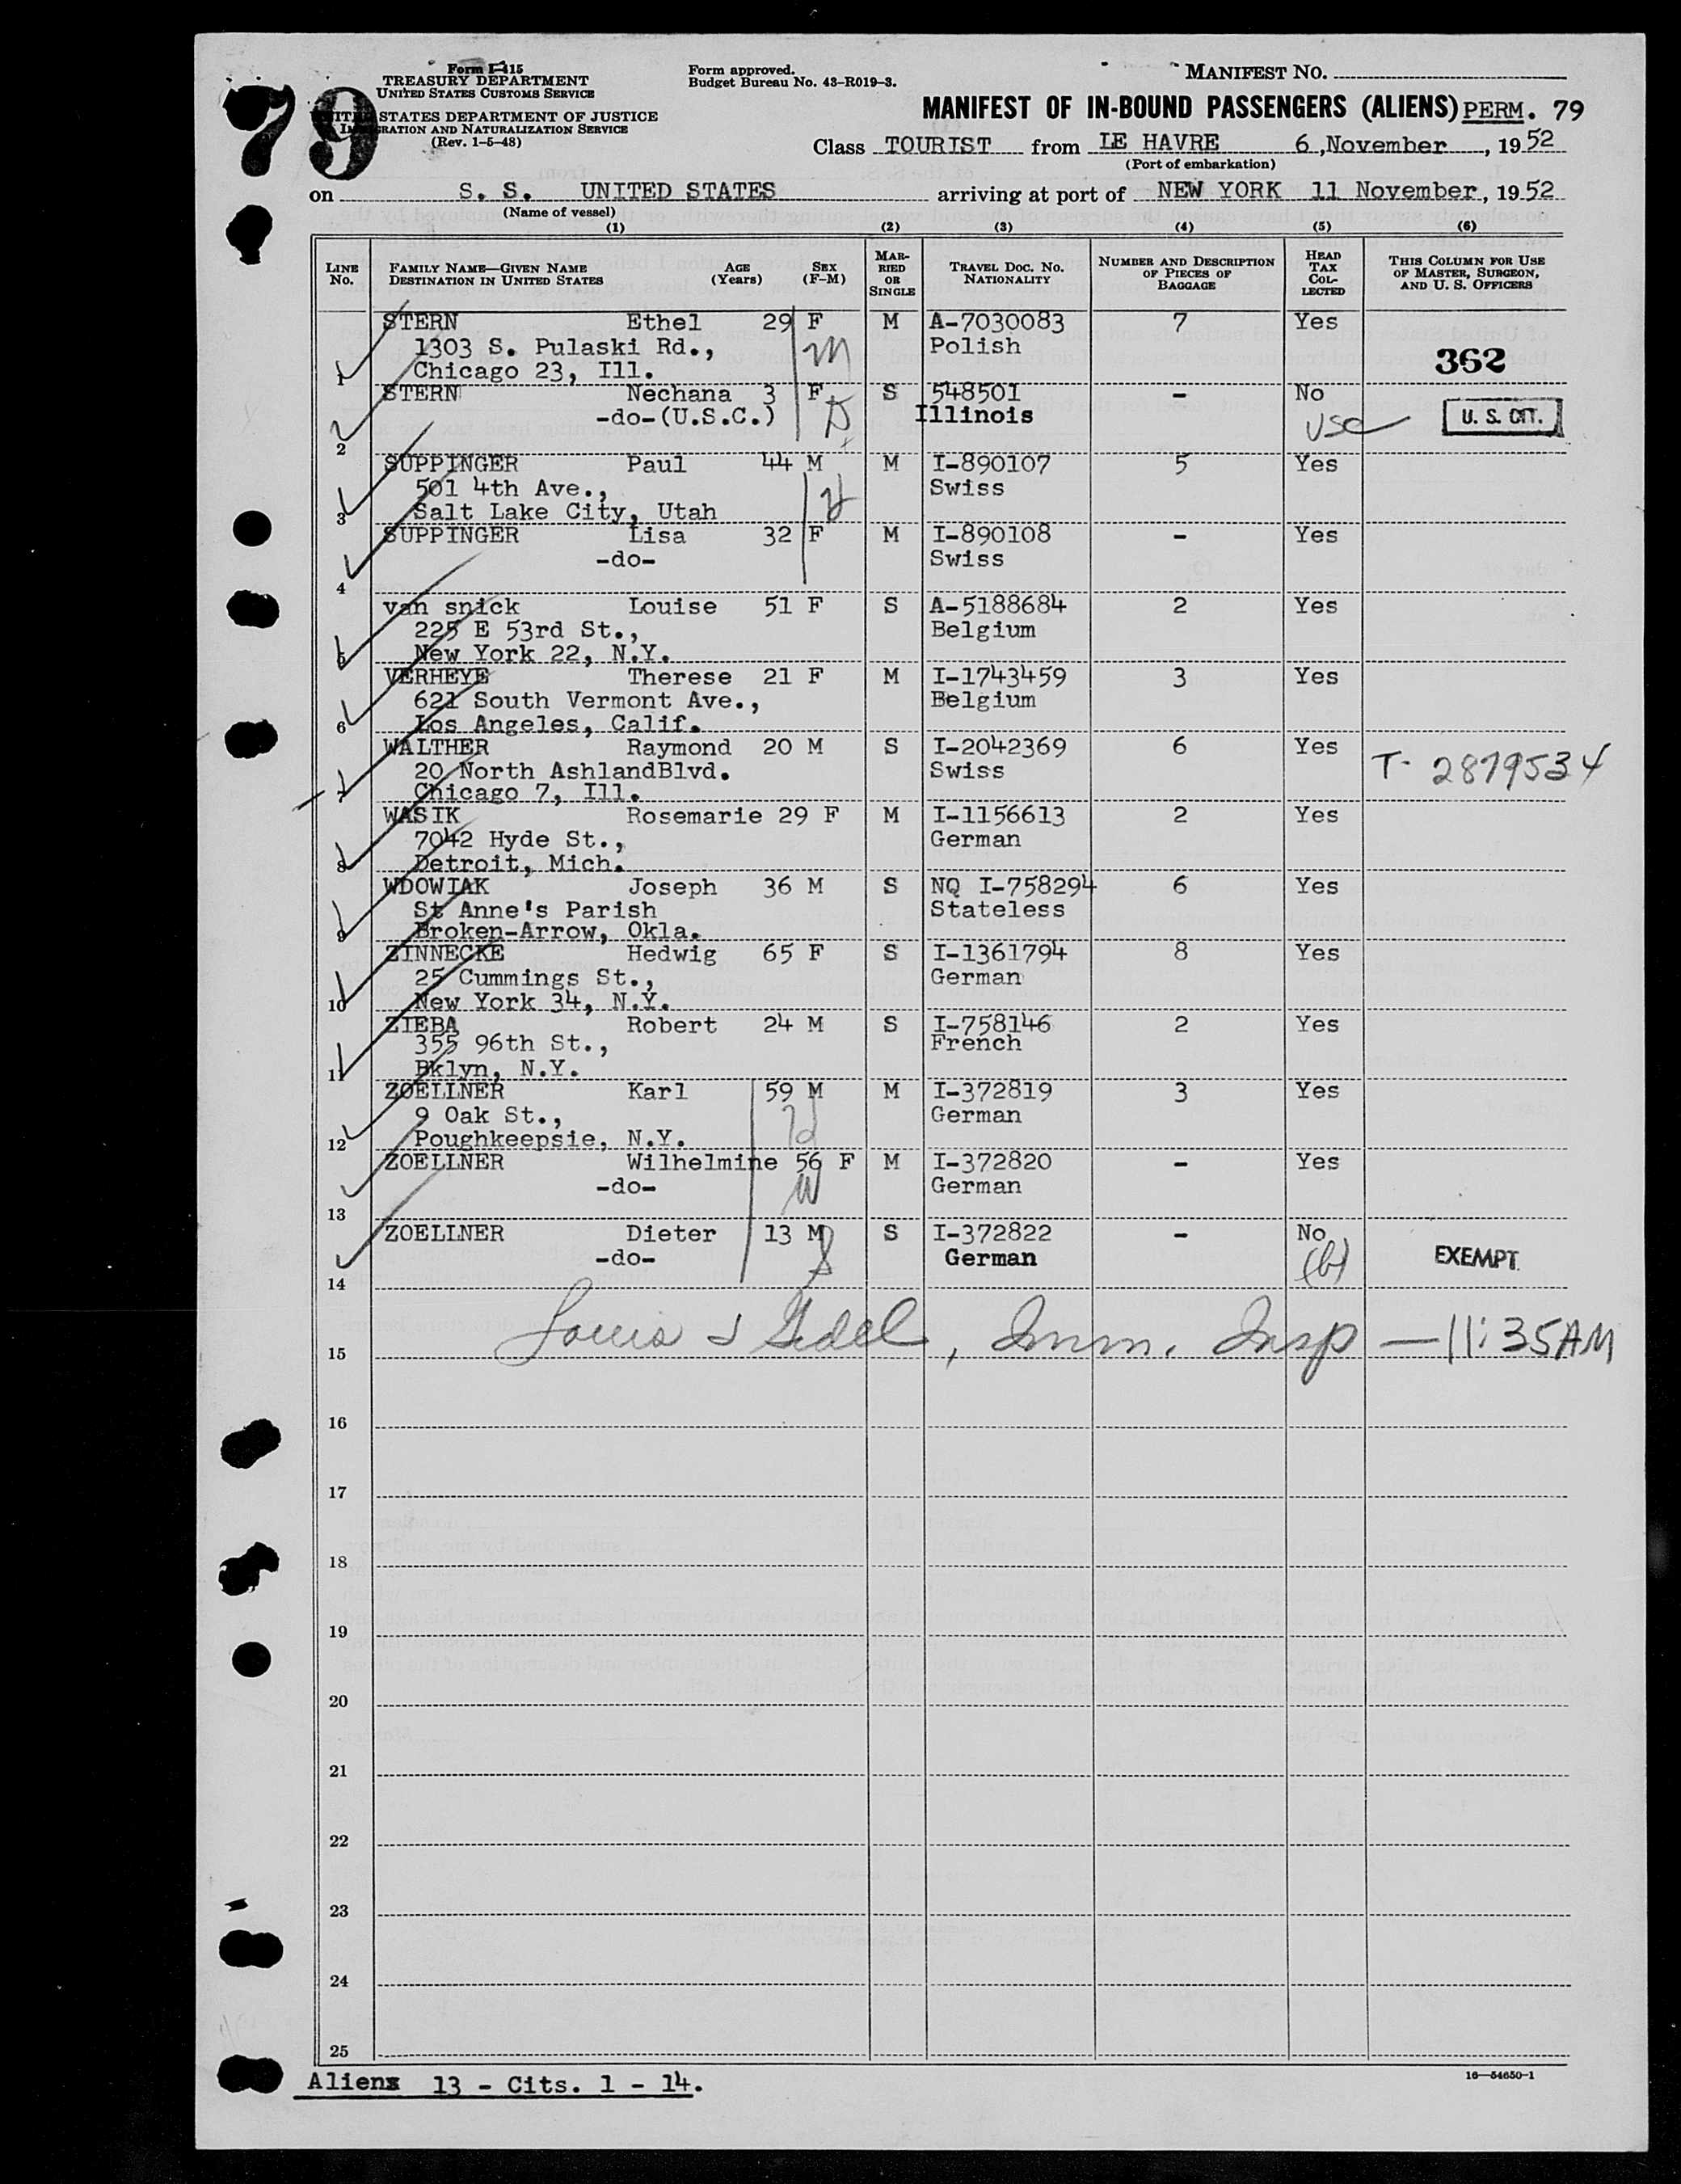 79
Form I-415
TREASURY DEPARTMENT
UNITED STATES CUSTOMS SERVICE
UNITED STATES DEPARTMENT OF JUSTICE
IMMIGRATION AND NATURALIZATION SERVICE
(Rev. 1-5-48)
Form approved.
Budget Bureau No. 43-R019-3.
MANIFEST NO.
MANIFEST OF IN-BOUND PASSENGERS (ALIENS) PERM. 79
Class TOURIST from LE HAVRE 6, November, 1952
(Port of embarkation)
on S. S. UNITED STATES arriving at port of NEW YORK 11 November, 1952
(Name of vessel)
(1) (2) (3) (4) (5) (6)
LINE No. FAMILY NAME—GIVEN NAME DESTINATION IN UNITED STATES AGE (Years) SEX (F-M) MARRIED OR SINGLE TRAVEL DOC. NO. NATIONALITY NUMBER AND DESCRIPTION OF PIECES OF BAGGAGE HEAD TAX COLLECTED THIS COLUMN FOR USE OF MASTER, SURGEON, AND U. S. OFFICERS
STERN Ethel 29 F M A-7030083 7 Yes
1303 S. Pulaski Rd., Polish 362
1 Chicago 23, Ill.
STERN Nechana 3 F S 548501 - No
-do-(U.S.C.) Illinois USC U. S. CIT.
2
SUPPINGER Paul 44 M M I-890107 5 Yes
501 4th Ave., Swiss
3 Salt Lake City, Utah
SUPPINGER Lisa 32 F M I-890108 - Yes
-do- Swiss
4
van snick Louise 51 F S A-5188684 2 Yes
225 E 53rd St., Belgium
5 New York 22, N.Y.
VERHEYE Therese 21 F M I-1743459 3 Yes
621 South Vermont Ave., Belgium
6 Los Angeles, Calif.
WALTHER Raymond 20 M S I-2042369 6 Yes T- 2879534
20 North AshlandBlvd. Swiss
7 Chicago 7, Ill.
WASIK Rosemarie 29 F M I-1156613 2 Yes
7042 Hyde St., German
8 Detroit, Mich.
WDOWIAK Joseph 36 M S NQ I-758294 6 Yes
St Anne's Parish Stateless
9 Broken-Arrow, Okla.
ZINNECKE Hedwig 65 F S I-1361794 8 Yes
25 Cummings St., German
10 New York 34, N.Y.
ZIEBA Robert 24 M S I-758146 2 Yes
355 96th St., French
11 Bklyn, N.Y.
ZOELLNER Karl 59 M M I-372819 3 Yes
9 Oak St., German
12 Poughkeepsie, N.Y.
ZOELLNER Wilhelmine 56 F M I-372820 - Yes
-do- German
13
ZOELLNER Dieter 13 M S I-372822 - No
-do- German (b) EXEMPT
14
Louis J Gidel, Imm. Insp — 11:35AM
15
16
17
18
19
20
21
22
23
24
25
16—54650-1
Aliens 13 - Cits. 1 - 14.